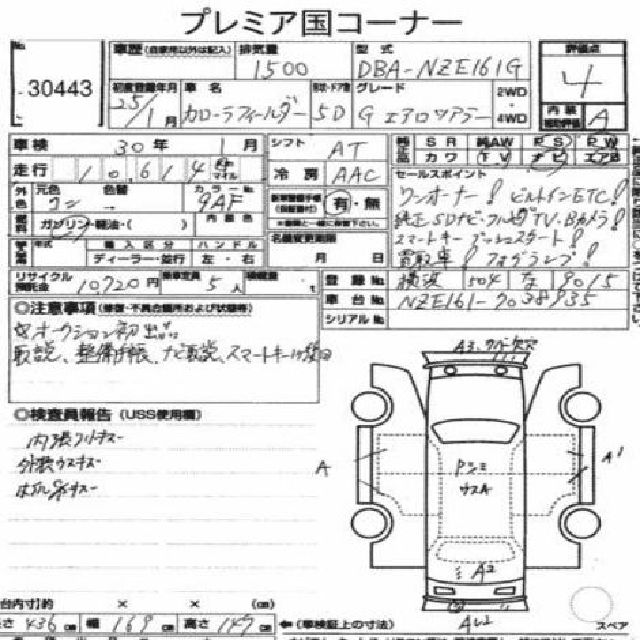 プレミア国コーナー
No.
30443
車歴 (自家用以外は記入)
排気量
1500
型式
DBA-NZE161G
評価点
4
初度登録年月
25年
1月
車名
カローラフィールダー
5D
グレード
G エアロツアラー
2WD
4WD
内装
A
車検
30年 1月
シフト
AT
SR 純AW PS PW
カワ TV ナビ エアB
走行
10,614
Km
マイル
冷房
AAC
セールスポイント
ワンオーナー! ビルトインETC!
純正SDナビ・フルセグTV・Bカメラ!
スマートキー プッシュスタート!
買取車! フォグランプ!
外色
元色
色替
カラーNo.
9AF
有・無
燃料
ガソリン・軽油・( )
内装色
名義変更期限
月 日
年式
輸入区分
ハンドル
ディーラー・並行
左・右
リサイクル預託金
10,720円
乗車定員
5人
積載量
登録No.
横浜 504 な 9015
車台No.
NZE161-7038935
シリアルNo.
◎注意事項 (修復・不具合箇所および状態等)
オークション初出品
取説、整備手帳、ナビ取説、スマートキー
◎検査員報告 (USS使用欄)
内張リキズ
外装ウスキズ
A
A1
A2
台内寸)約 × × (cm)
さ 436 cm 幅 169 cm 高さ 147 cm
(車検証上の寸法)
スペア